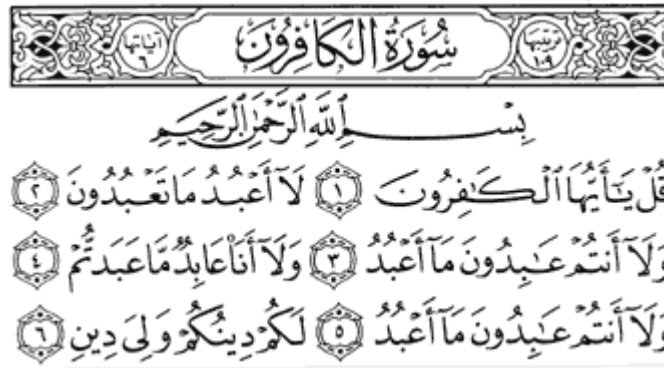 ترتيبها ١٠٩ سُورَةُ الكَافِرُون آياتها ٦
بِسْمِ ٱللَّهِ ٱلرَّحْمَٰنِ ٱلرَّحِيمِ
قُلْ يَٰٓأَيُّهَا ٱلْكَٰفِرُونَ ١ لَآ أَعْبُدُ مَا تَعْبُدُونَ ٢
وَلَآ أَنتُمْ عَٰبِدُونَ مَآ أَعْبُدُ ٣ وَلَآ أَنَا۠ عَابِدٌ مَّا عَبَدتُّمْ ٤
وَلَآ أَنتُمْ عَٰبِدُونَ مَآ أَعْبُدُ ٥ لَكُمْ دِينُكُمْ وَلِىَ دِينِ ٦